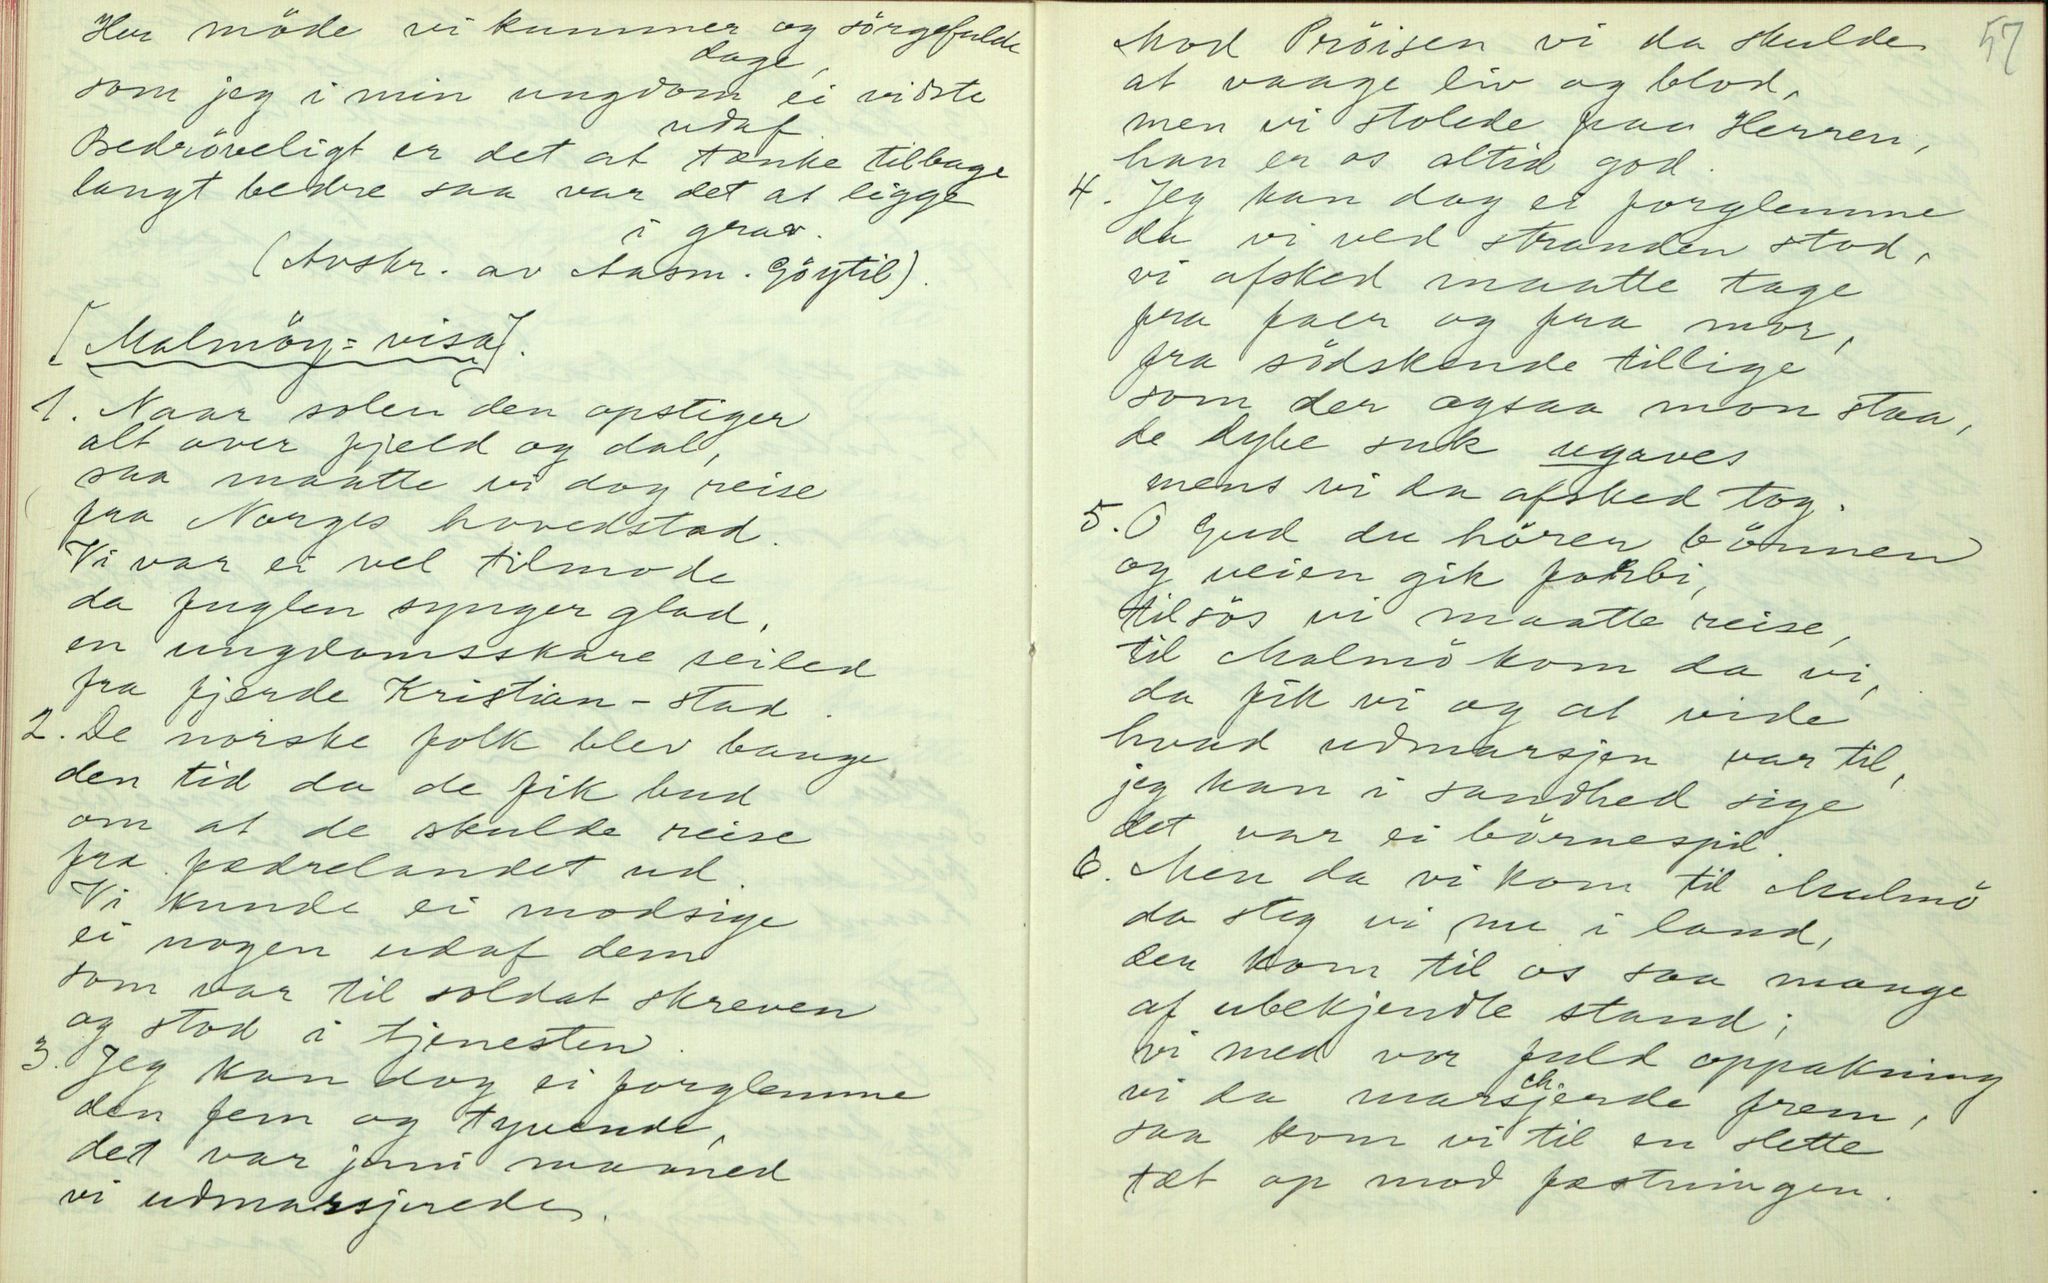 Her møde vi kummer og sörgefulde
dage,
som jeg i min ungdom ei vidste
udaf.
Bedröveligt er det at tænke tilbage
langt bedre saa var det at ligge
i grav.
(Avskr. av Aasm. Göytil).
[Malmöy=visa].
1. Naar solen den opstiger
alt over fjeld og dal,
saa maatte vi dog reise
fra Norges hovedstad.
Vi var ei vel tilmode
da fuglen synger glad,
en ungdomsskare seiled
fra fjerde Kristian-stad.
2. De norske folk blev bange
den tid da de fik bud
om at de skulde reise
fra fædrelandet ud.
Vi kunde ei modsige
ei nogen udaf dem
som var til soldat skreven
og stod i tjenesten.
3. Jeg kan dog ei forglemme
den fem og tyvende,
det var juni maaned
vi udmarsjerede.
57
Mod Pröisen vi da skulde
at vaage liv og blod,
men vi stolede paa Herren,
han er os altid god.
4. Jeg kan dog ei forglemme
da vi ved stranden stod,
vi afsked maatte tage
fra faer og fra mor,
fra södskende tillige
som der ogsaa mon staa,
de dybe suk ugaves
mens vi da afsked tog.
5. O Gud du hörer bönnen
og veien gik forbi,
tilsös vi maatte reise,
til Malmö kom da vi,
da fik vi og at vide
hvad udmarsjen var til,
jeg kan i sandhed sige
det var ei börnespil.
6. Men da vi kom til Malmö
da steg vi nu i land,
der kom til os saa mange
af ubekjendte stand;
vi med vor fuld oppakning
vi da marschjerde frem,
saa kom vi til en slette
tæt op mod fæstningen.